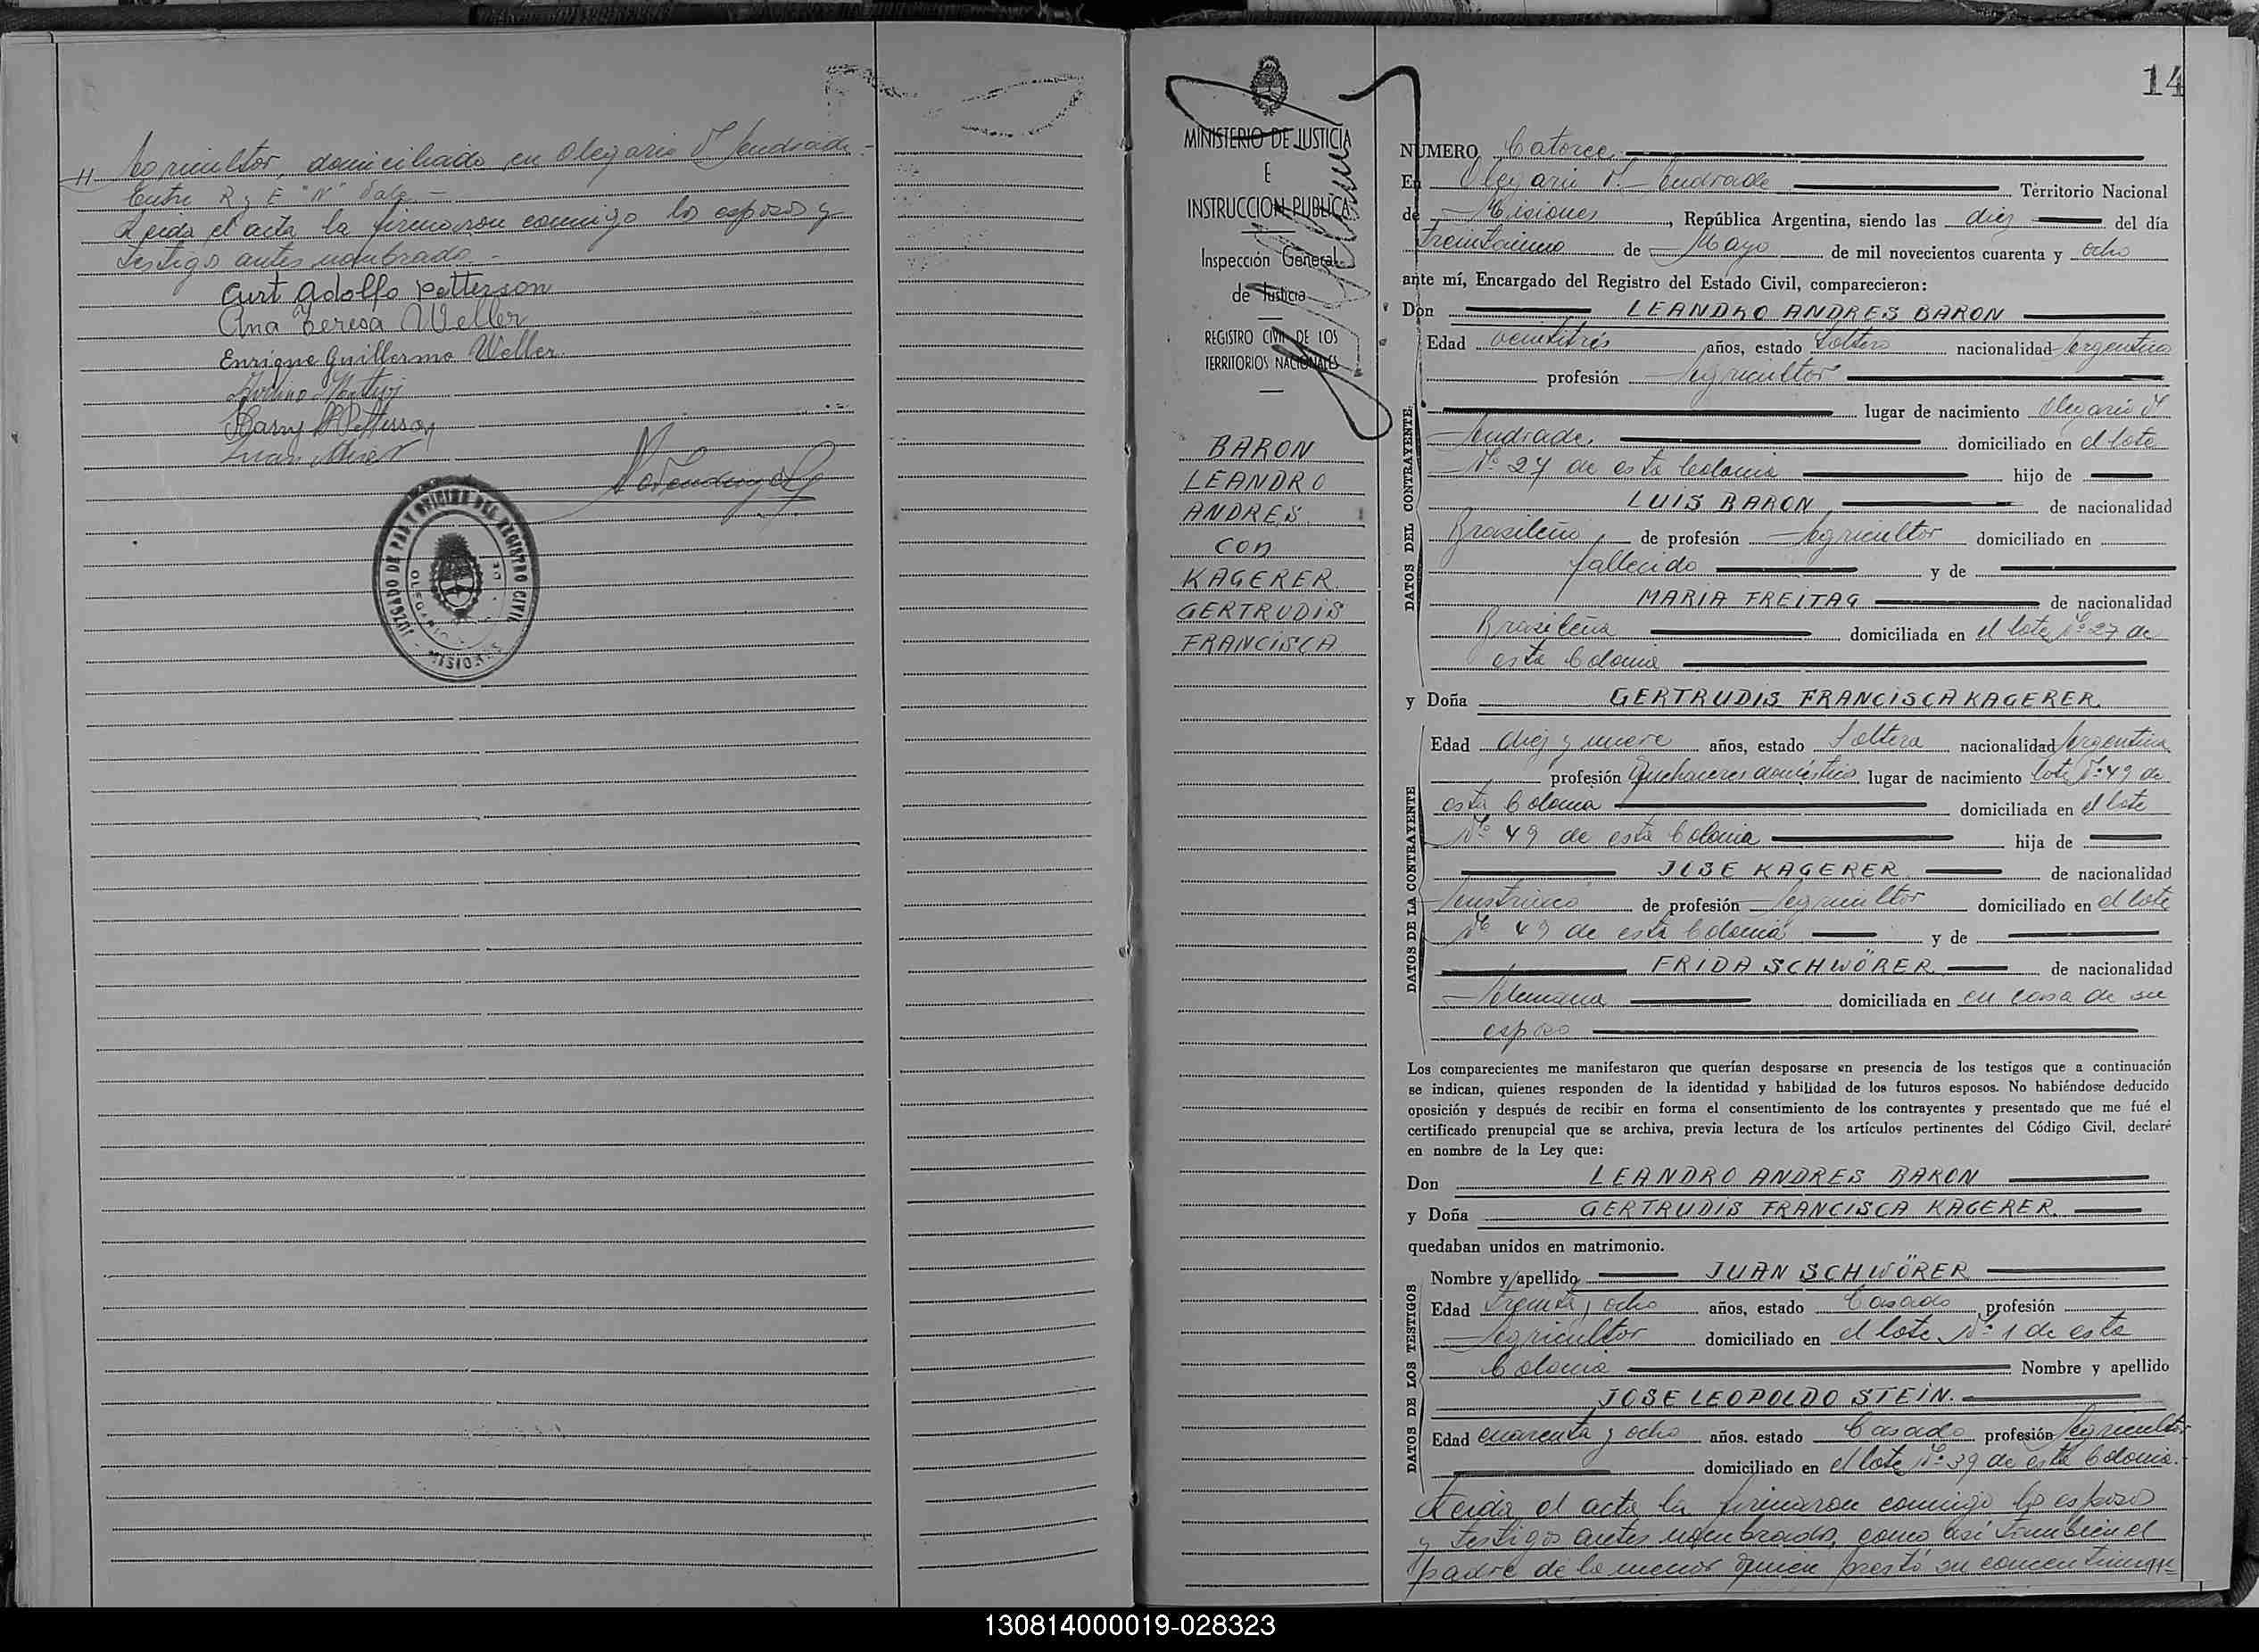 // Agricultor, domiciliado en Olegario V. Andrade.-
Entre R y E "N" Vale -
Leida el acta la firmaron conmigo los esposos y
testigos antes nombrados.-
Curt Adolfo Petterson
Ana Teresa Weller
Enrique Guillermo Weller
Harry Petterson
Juan
JUZGADO DE PAZ Y OFICINA DEL REGISTRO CIVIL
MISIONES
14
MINISTERIO DE JUSTICIA
E
INSTRUCCION PUBLICA
Inspección General
de Justicia
REGISTRO CIVIL DE LOS
TERRITORIOS NACIONALES
BARON
LEANDRO
ANDRES
CON
KAGERER
GERTRUDIS
FRANCISCA
NUMERO Catorce
En Olegario V. Andrade Territorio Nacional
de Misiones, República Argentina, siendo las diez del día
treintaiuno de Mayo de mil novecientos cuarenta y ocho
ante mí, Encargado del Registro del Estado Civil, comparecieron:
Don LEANDRO ANDRES BARON
DATOS DEL CONTRAYENTE
Edad veintitrés años, estado Soltero nacionalidad Argentina
profesión Agricultor
lugar de nacimiento Olegario V.
Andrade, domiciliado en el lote
Nº 27 de esta Colonia hijo de
LUIS BARON de nacionalidad
Brasileño de profesión Agricultor domiciliado en
fallecido y de
MARIA FREITAG de nacionalidad
Brasileña domiciliada en el lote Nº 27 de
esta Colonia
y Doña GERTRUDIS FRANCISCA KAGERER
DATOS DE LA CONTRAYENTE
Edad diez y nueve años, estado Soltera nacionalidad Argentina
profesión Quehaceres domésticos lugar de nacimiento lote Nº 49 de
esta Colonia domiciliada en el lote
Nº 49 de esta Colonia hija de
JOSE KAGERER de nacionalidad
Austriaco de profesión Agricultor domiciliado en el lote
Nº 49 de esta Colonia y de
FRIDA SCHWÖRER de nacionalidad
Alemana domiciliada en en casa de su
esposo
Los comparecientes me manifestaron que querían desposarse en presencia de los testigos que a continuación
se indican, quienes responden de la identidad y habilidad de los futuros esposos. No habiéndose deducido
oposición y después de recibir en forma el consentimiento de los contrayentes y presentado que me fué el
certificado prenupcial que se archiva, previa lectura de los artículos pertinentes del Código Civil, declaré
en nombre de la Ley que:
Don LEANDRO ANDRES BARON
y Doña GERTRUDIS FRANCISCA KAGERER
quedaban unidos en matrimonio.
DATOS DE LOS TESTIGOS
Nombre y apellido JUAN SCHWÖRER
Edad treinta y ocho años, estado Casado profesión
Agricultor domiciliado en el lote Nº 1 de esta
Colonia Nombre y apellido
JOSE LEOPOLDO STEIN.
Edad cuarenta y ocho años, estado Casado profesión Agricultor
domiciliado en el lote Nº 39 de esta Colonia.-
Leida el acta la firmaron conmigo los esposos
y testigos antes nombrados, como así tambien el
padre de la menor quien prestó su concentimien
130814000019-028323